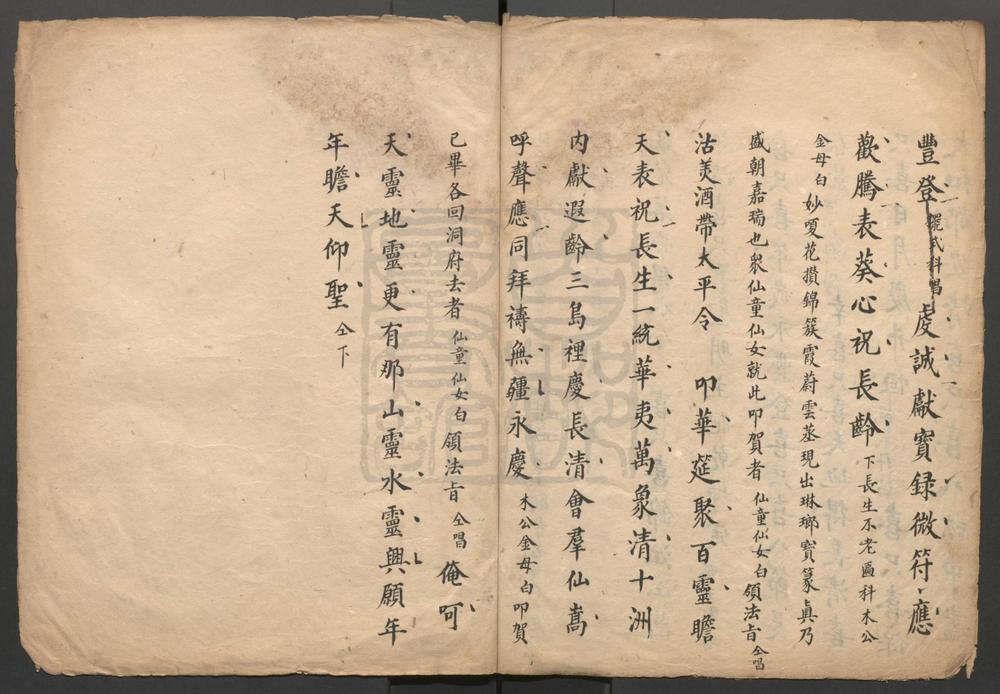 豐登擺式科唱虔誠獻寶録微符應
歡騰表葵心祝長齡下長生不老匾科木公
金母白妙嗄花攢錦簇霞蔚雲蒸現出琳瑯寶篆眞乃
盛朝嘉瑞也衆仙童仙女就此叩賀者仙童仙女白領法旨仝唱
沽羙酒帶太平令 叩華莚聚百靈瞻
天表祝長生一統華夷萬象清十洲
内獻遐齡三島裡慶長清會羣仙嵩
呼聲應同拜禱無疆永慶木公金母白叩賀
已畢各回洞府去者仙童仙女白領法旨仝唱俺呵
天靈地靈更有那山靈水靈興願年
年瞻天仰聖仝下